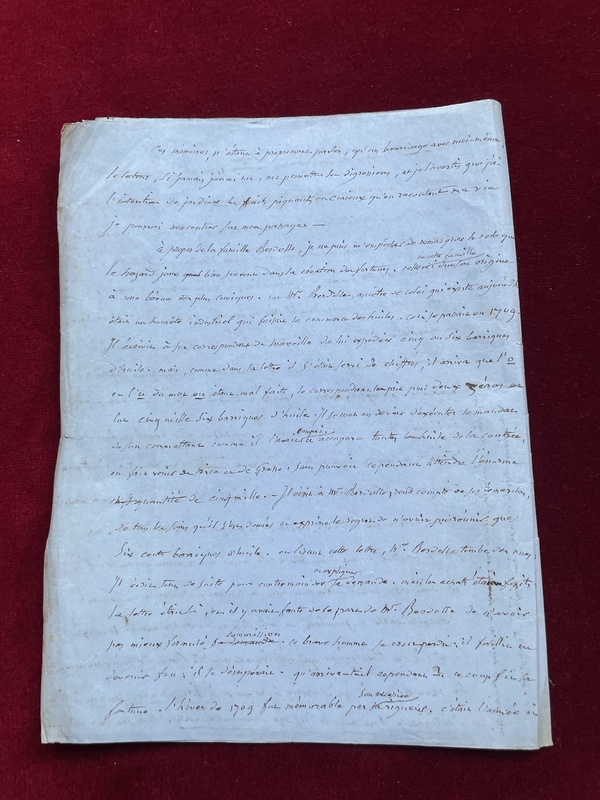 Ces mémoires, n'étant à proprement parler, qu'un bavardage avec moi-même
le lecteur, si jamais j'en ai un, me permettra les digressions, et je l'avertis que j'ai
l'intention de joindre les faits piquants ou curieux qu'en racontant ma vie
je pourrai rencontrer sur mon passage —
à propos de la famille Bordelle, je ne puis m'empêcher de remarquer le rôle que
le hazard joue bien souvent dans la création des fortunes. cette famille son origine
à une bévue des plus comiques. un Mr. Bordelle, ancêtre de celui qui existe aujourd'h
était un honnête industriel qui faisait le commerce des huiles. ceci se passait en 1709.
Il écrivit à son correspondant de Marseille de lui expédier cinq ou six barriques
d'huile. mais, comme dans la lettre il s'était servi de chiffres, il arriva que l'o
et l'u du mot ou étant mal faits, le correspondant les prit pour deux zéros et
lut cinq mille six barriques d'huile. Il se met en devoir d'exécuter le mandat
de son commettant comme il l'avait compris accapara toutes les huiles de la contrée,
en fait venir de Nice et de Grasse; sans pouvoir cependant atteindre l'énorme
quantité de cinq mille. — Il écrit à Mr Bordelle, rend compte de ses démarches,
de tous les soins qu'il s'est donnés et exprime le regret de n'avoir pu réunir que
six cents barriques d'huile. en lisant cette lettre, Mr. Bordelle tombe des nues,
Il écrit tout de suite pour contremander et expliquer sa demande. mais les achats étaient faits
la lettre était là, et il y avait faute de la part de Mr. Bordelle de n'avoir
pas mieux formulé sa commission. ce brave homme se crut perdu; il faillit en
devenir fou; il se désespérait. qu'arriva-t-il cependant? ce coup fit sa
fortune. L'hiver de 1709 fut mémorable par son excessive rigueur. c'était l'année où